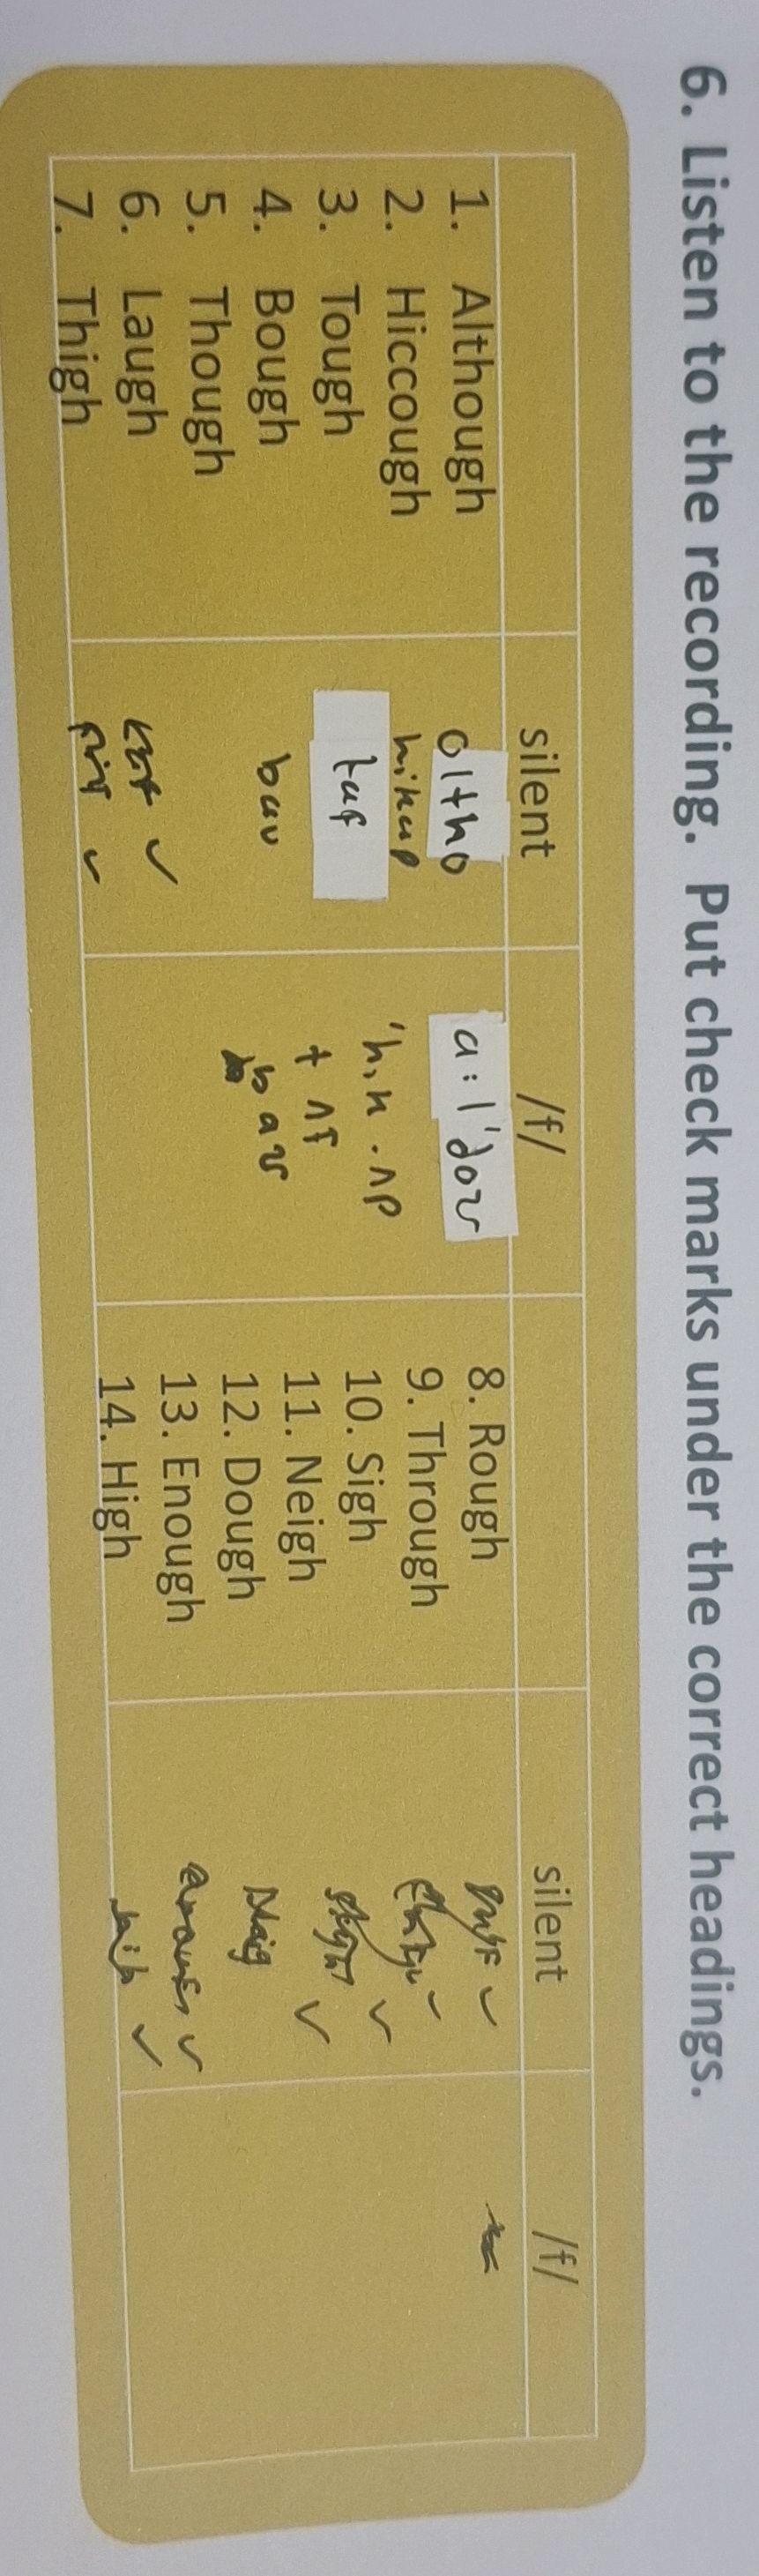 6. Listen to the recording. Put check marks under the correct headings.
silent /f/ silent /f/
1. Although oltho a:l'dov 8. Rough ✓
2. Hiccough hikup 'hik.ʌp 9. Through ✓
3. Tough tuf tʌf 10. Sigh ✓
4. Bough bau baʊ 11. Neigh ✓
5. Though 12. Dough
6. Laugh ✓ 13. Enough ✓
7. Thigh ✓ 14. High ✓